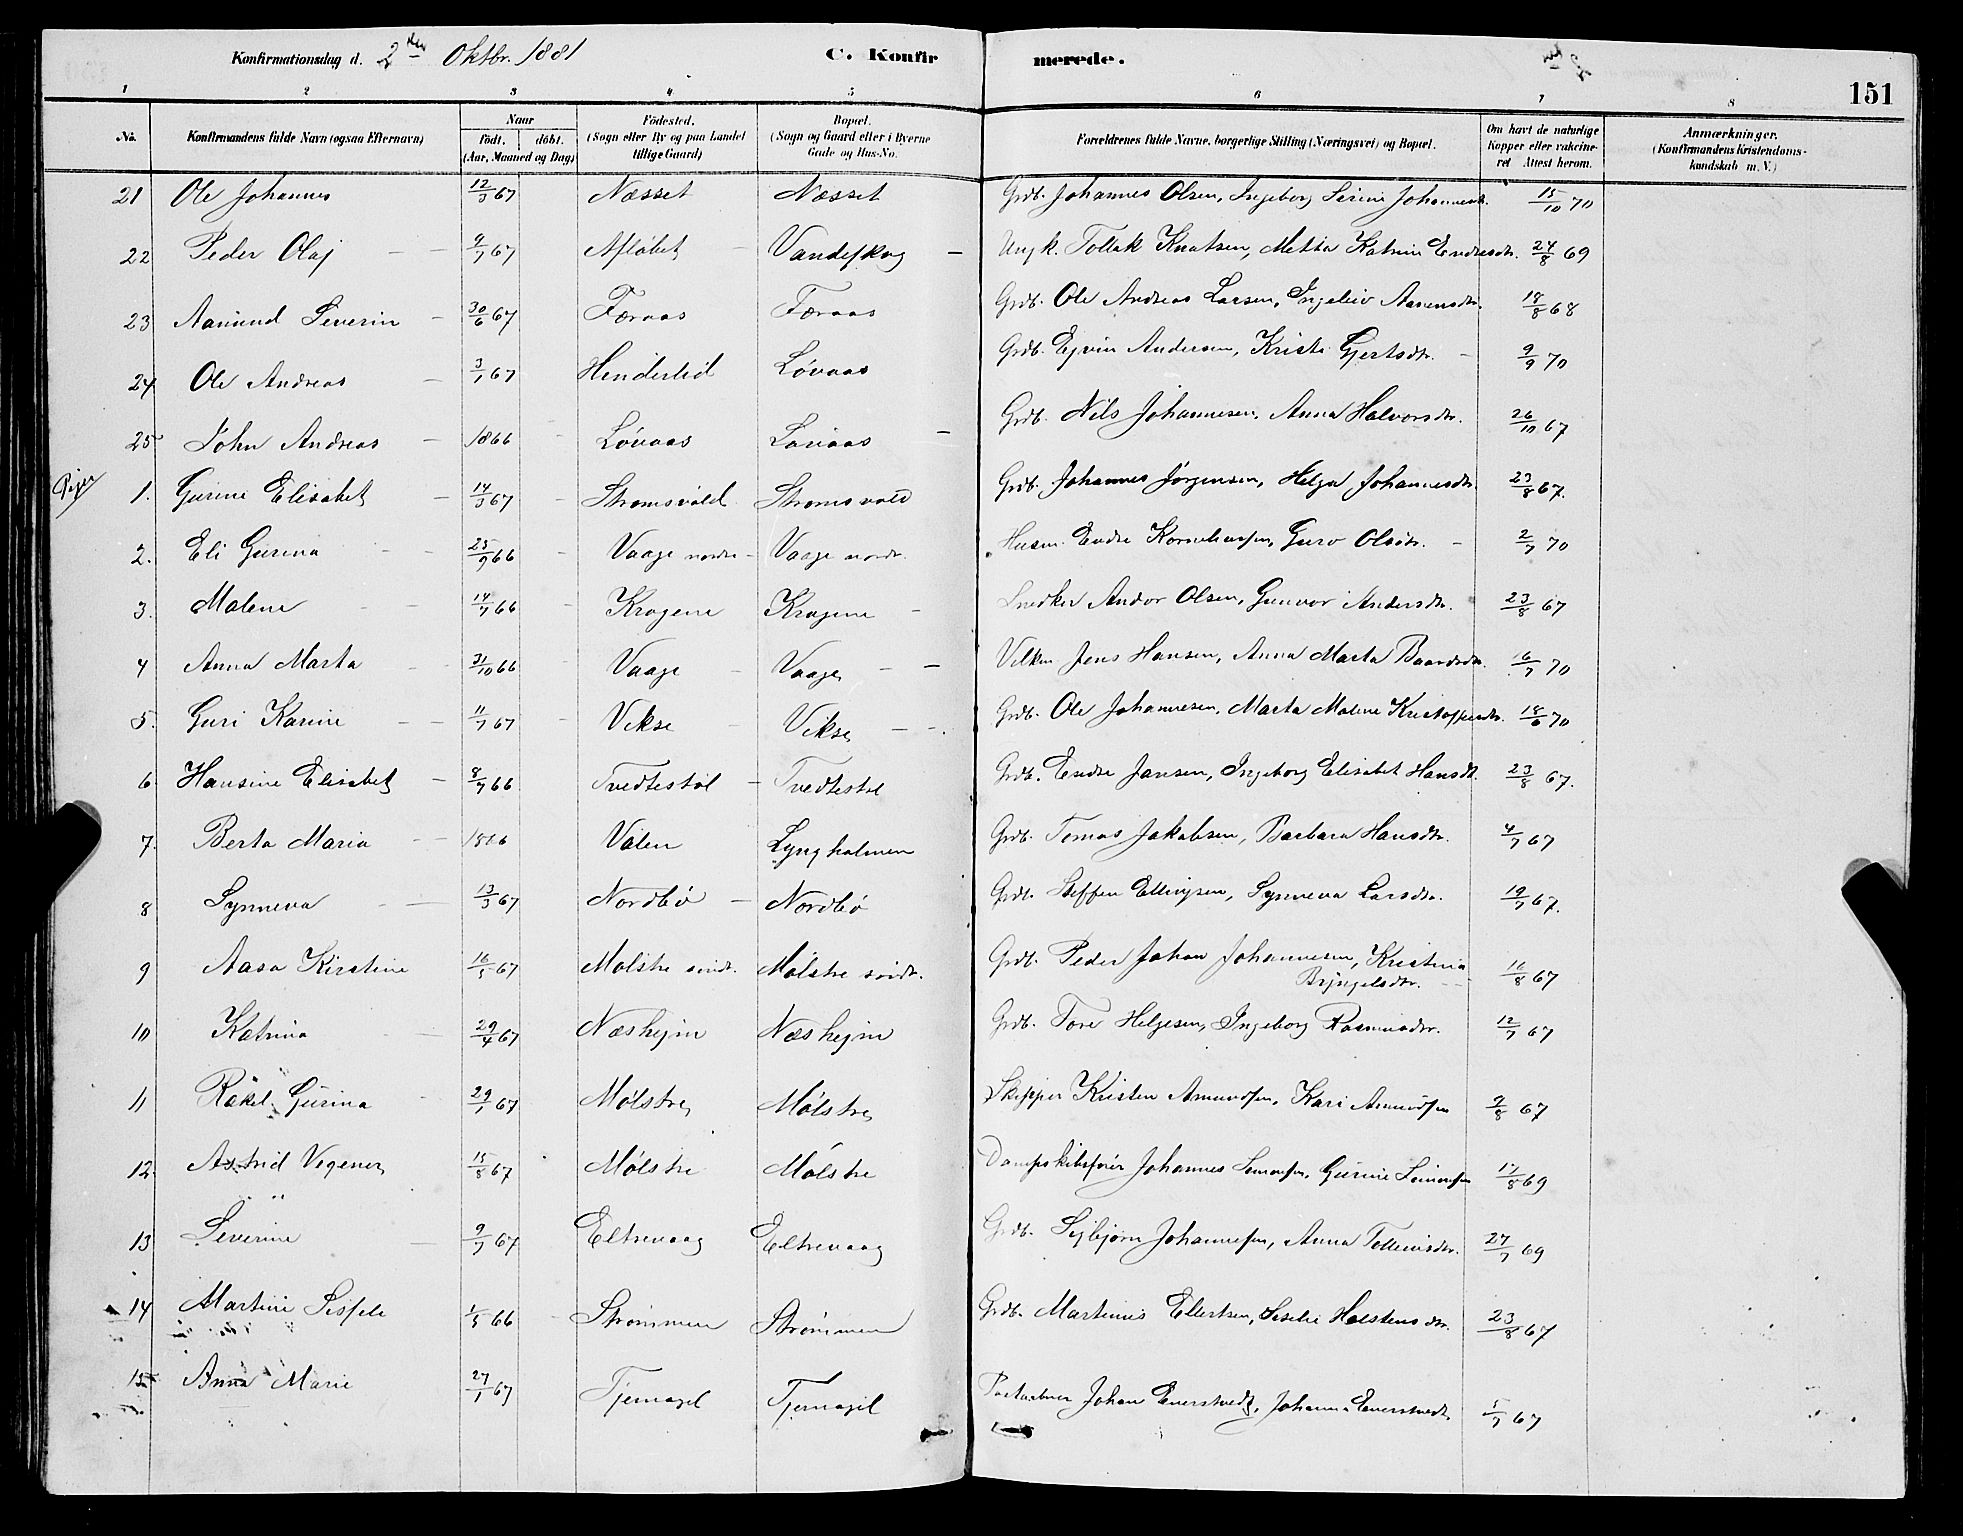 Konfirmationsdag d. 2den Oktbr. 1881 C. Konfir merede.
151
1 2 3 4 5 6 7 8
No. Konfirmandens fulde Navn (ogsaa Efternavn) Naar födt. döbt. (Aar, Maaned og Dag) Födested. (Sogn eller By og paa Landet tillige Gaard) Bopæl. (Sogn og Gaard eller i Byerne Gade og Hus-No. Forældrenes fulde Navne, borgerlige Stilling (Næringsvei) og Bopæl. Om havt de naturlige Kopper eller vakcineret Attest herom. Anmærkninger. (Konfirmandens Kristendomskundskab m. V.)
21 Ole Johannes 12/3 67 Næsset Næsset Grdb. Johannes Olsen, Ingeborg Serine Johannesdr. 15/10 70
22 Peder Olaf 9/7 67 Afløbet Vandaskog Ungk. Tollak Knutsen, Metta Katrine Endresdtr. 24/8 69
23 Aamund Severin 30/6 67 Færaas Færaas Grdb. Ole Andreas Larsen, Ingeleiv Aanensdtr. 18/8 68
24 Ole Andreas 3/1 67 Henderlid Løvaas Grdb. Ejvin Andersen, Kristi Gjertsdtr. 9/9 70
25 John Andreas 1866 Løvaas Løvaas Grdb. Nils Johannesen, Anna Halvorsdtr. 26/10 67
Piger
1. Gurine Elisabet 14/3 67 Strømsvold Strømsvold Grdb. Johannes Jørgensen, Helga Johannesdtr. 23/8 67.
2. Eli Gurina 25/9 66 Vaage nordr. Vaage nordr. Husm. Endre Korneliussen, Guro Olsdtr. 2/7 70
3. Malene 14/7 66 Kragene Kragene Snedker Andor Olsen, Gunvor Andersdtr. 23/8 67
4 Anna Marta 31/10 66 Vaage Vaage Jens Hansen, Anna Marta Baardsdtr. 16/7 70
5. Guri Karine 11/7 67 Vikse Vikse Grdb. Ole Johannesen, Marta Malene Kristoffersdtr. 18/6 70
6 Hansine Elisabet 8/7 66 Tvedtestøl Tvedtestøl Grdb. Endre Jansen, Ingeborg Elisabet Hansdt. 23/8 67.
7. Berta Maria 1866 Valen Lyngholmen Grdb. Tomas Jakobsen, Barbara Hansdtr. 4/7 67
8 Synneva 13/3 67 Nordbø Nordbø Grdb. Steffen Ellingsen, Synneva Larsdtr. 19/7 67.
9 Aasa Kirstine 16/5 67 Mølstre søndr. Mølstre søndr. Grdb. Peder Johan Johannesen, Kristina
Bryngelsdtr. 16/8 67
10 Katrina 29/4 67 Næshejm Næshejm Grdb. Tore Helgesen, Ingeborg Rasmusdtr. 12/7 67
11 Rakel Gurina 29/1 67 Mølstre Mølstre Skipper Kristen Amundsen, Kari Amundsen 9/8 67
12. Astrid Vegener 15/8 67 Mølstre Mølstre Dampskibsfører Johannes Simonsen, Gurine Simonsen 17/8 69
13 Severine 9/7 67 Eltrevaag Eltrevaag Grdb. Sigbjørn Johannesen, Anna Tollevsdtr. 27/7 69
14 Martine Sisfele 1/5 66 Strømmen Strømmen Grdb. Martinus Ellertsen, Sisele Halstensdtr. 23/8 67
15 Anna Marie 27/1 67 Tjernagel Tjernagel Postaabner Johan Enerstvedt, Johanna Enerstvedt 5/7 67